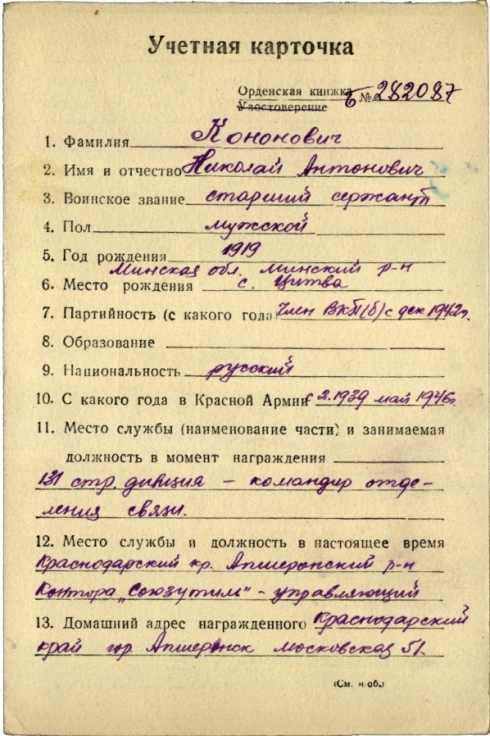 Учетная карточка
Орденская книжка
Удостоверение
Б №282087
1. Фамилия Кононович
2. Имя и отчество Николай Антонович
3. Воинское звание старший сержант
4. Пол мужской
5. Год рождения 1919
Минская обл. Минский р-н
6. Место рождения с. Цитва
7. Партийность (с какого года) Член ВКП(б) с дек 1942г.
8. Образование
9. Национальность русский
10. С какого года в Красной Армии с 2.1939 май 1946г.
11. Место службы (наименование части) и занимаемая
должность в момент награждения
131 стр. дивизия – командир отде-
ления связи.
12. Место службы и должность в настоящее время
Краснодарский кр. Апшеронский р-н
Контора „Союзутиль" – управляющий
13. Домашний адрес награжденного Краснодарский
край гор Апшеронск Московская 51.
(См. н об.)